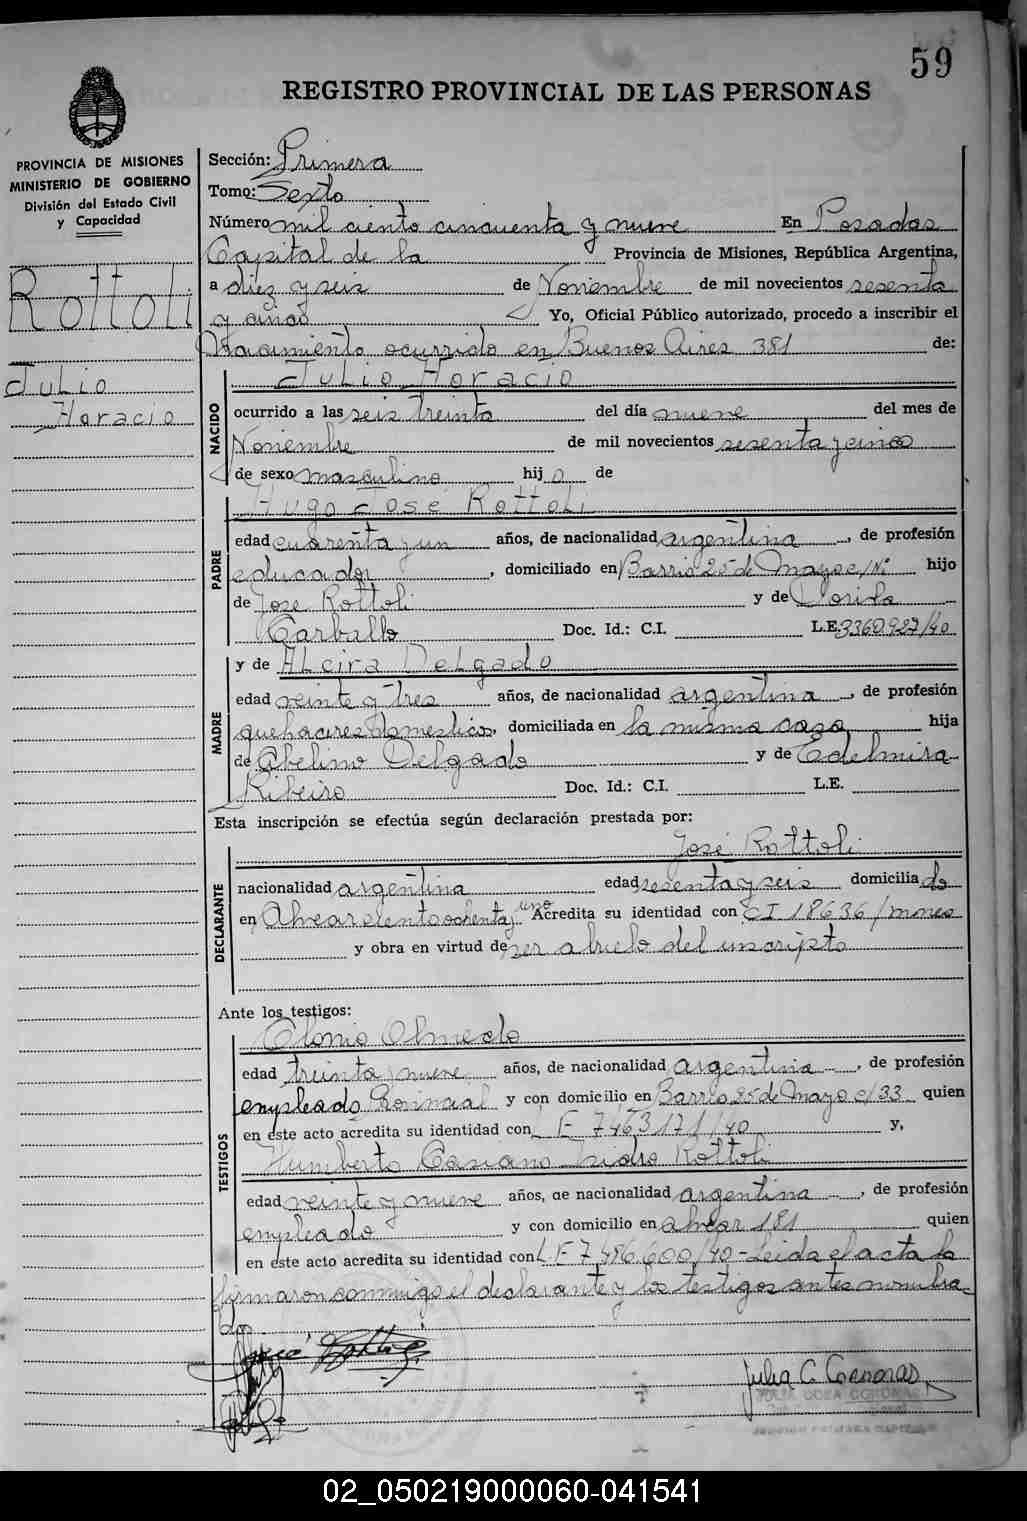 59
REGISTRO PROVINCIAL DE LAS PERSONAS
PROVINCIA DE MISIONES
MINISTERIO DE GOBIERNO
División del Estado Civil
y Capacidad
Rottoli
Julio
Horacio
Sección: Primera
Tomo: Sexto
Número mil ciento cincuenta y nueve En Posadas
Capital de la Provincia de Misiones, República Argentina,
a diez y seis de Noviembre de mil novecientos sesenta
y cinco Yo, Oficial Público autorizado, procedo a inscribir el
Nacimiento ocurrido en Buenos Aires 381 de:
NACIDO
Julio Horacio
ocurrido a las seis treinta del día nueve del mes de
Noviembre de mil novecientos sesenta y cinco
de sexo masculino hijo de
PADRE
Hugo José Rottoli
edad cuarenta y un años, de nacionalidad argentina, de profesión
educador, domiciliado en Barrio 25 de Mayo c/ hijo
de José Rottoli y de Dorila
Carballo Doc. Id.: C.I. L.E. 3360.927/40
MADRE
y de Alcira Delgado
edad veinte y tres años, de nacionalidad argentina, de profesión
quehaceres domesticos, domiciliada en la misma casa hija
de Abelino Delgado y de Edelmira
Ribeiro Doc. Id.: C.I. L.E.
Esta inscripción se efectúa según declaración prestada por:
DECLARANTE
José Rottoli
nacionalidad argentina edad sesenta y seis domiciliado
en Alvear ciento ochenta y uno Acredita su identidad con CI 18636/mnes
y obra en virtud de ser abuelo del inscripto
Ante los testigos:
TESTIGOS
Olmedo
edad treinta nueve años, de nacionalidad argentina, de profesión
empleado Provincial y con domicilio en Barrio 25 de Mayo c/33 quien
en este acto acredita su identidad con L E 7463171/40 y,
Humberto Casiano Isidro Rottoli
edad veinte y nueve años, de nacionalidad argentina, de profesión
empleado y con domicilio en alvear 181 quien
en este acto acredita su identidad con L.E 7.486.600/40 - Leida el acta la
firmaron conmigo el declarante y los testigos antes nombra
do
José Rottoli
Julia C. Coronas
JULIA COZA CORONAS
02_050219000060-041541